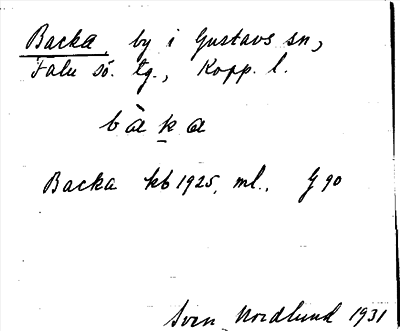 Backa, by i Gustavs sn,
Falu sö. tg., Kopp. l.
bàka
Backa kb 1925, ml., G 90
Sven Nordlund 1931